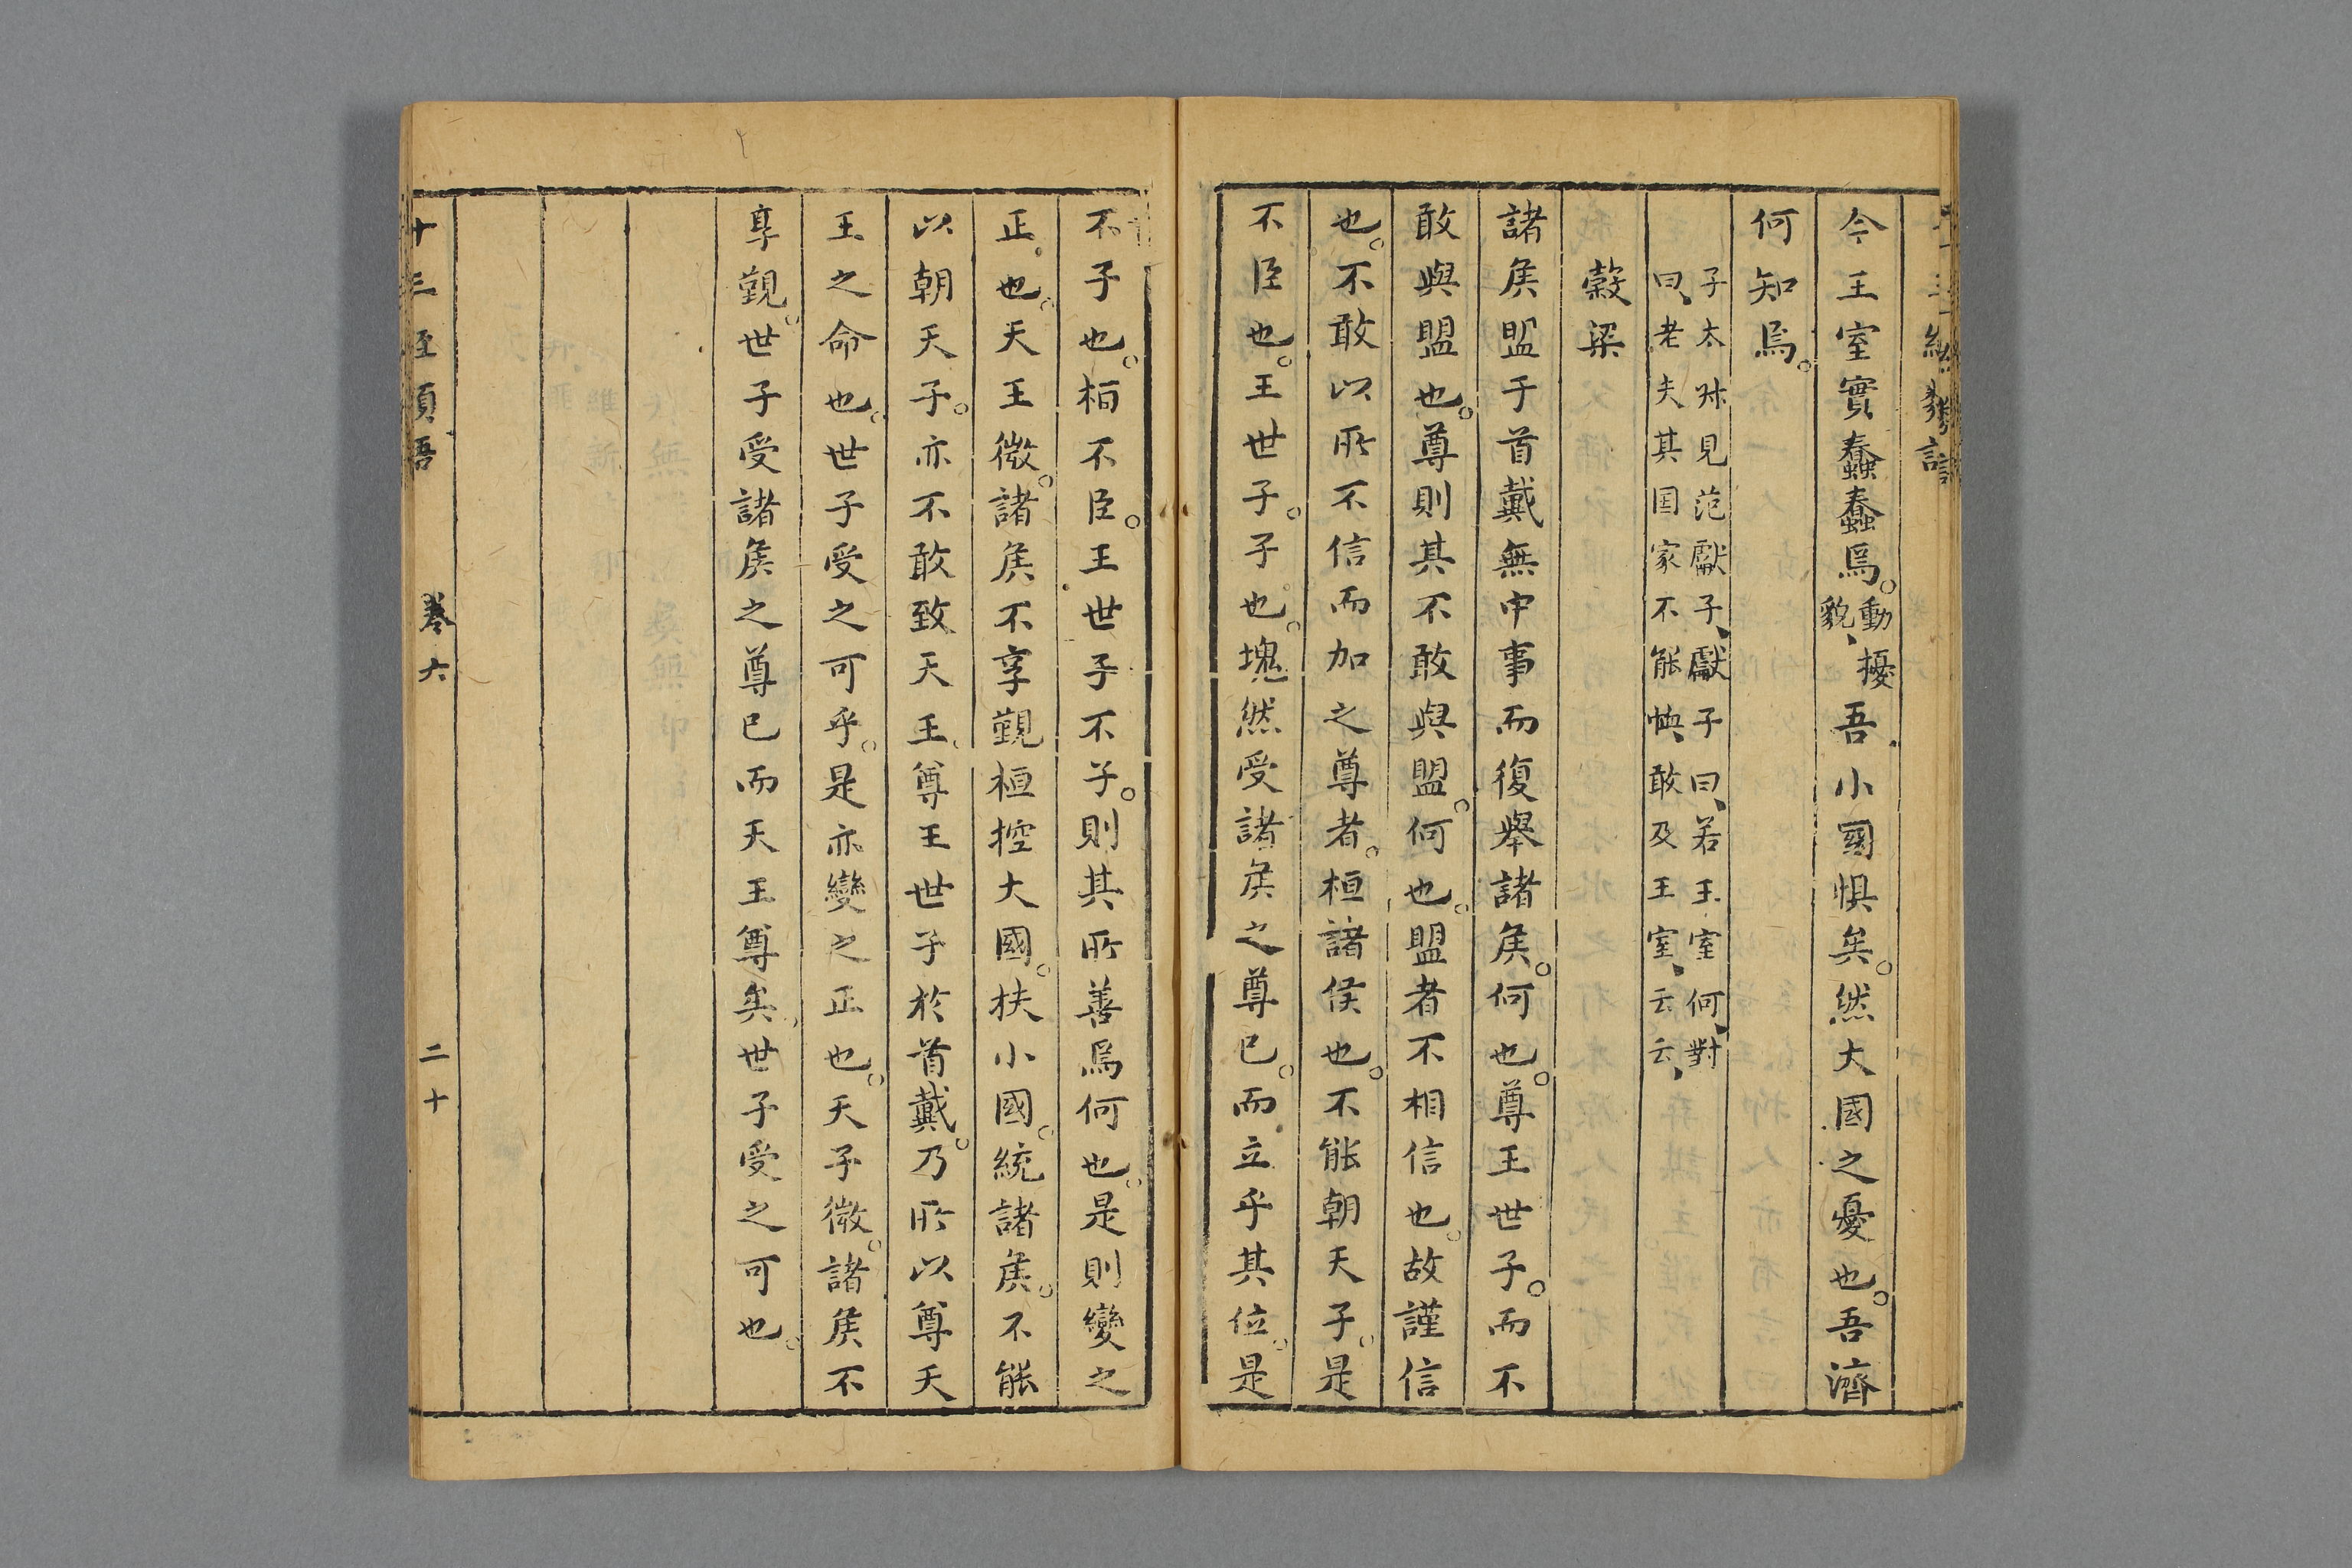 今王室實蠢蠢焉。動擾貌、吾小國惧矣。然大國之憂也。吾濟
何知焉。
子太叔見范獻子、獻子曰、若王室何、對
曰、老夫其国家不能恤、敢及王室、云云、
穀梁
諸侯盟于首戴無中事而復舉諸侯。何也。尊王世子。而不
敢與盟也。尊則其不敢與盟。何也。盟者不相信也。故謹信
也。不敢以所不信而加之尊者。桓諸侯也。不能朝天子。是
不臣也。王世子。子也。塊然受諸侯之尊已。而立乎其位。是
不子也。桓不臣。王世子不子。則其所善焉何也。是則變之
正也。天王微。諸侯不享覲桓控大國。扶小國。統諸侯。不能
以朝天子。亦不敢致天王、尊王世子於首戴。乃所以尊天
王之命也。世子受之可乎。是亦變之正也。天子微。諸侯不
享覲。世子受諸侯之尊已而天王尊矣、世子受之可也。
卷六
二十